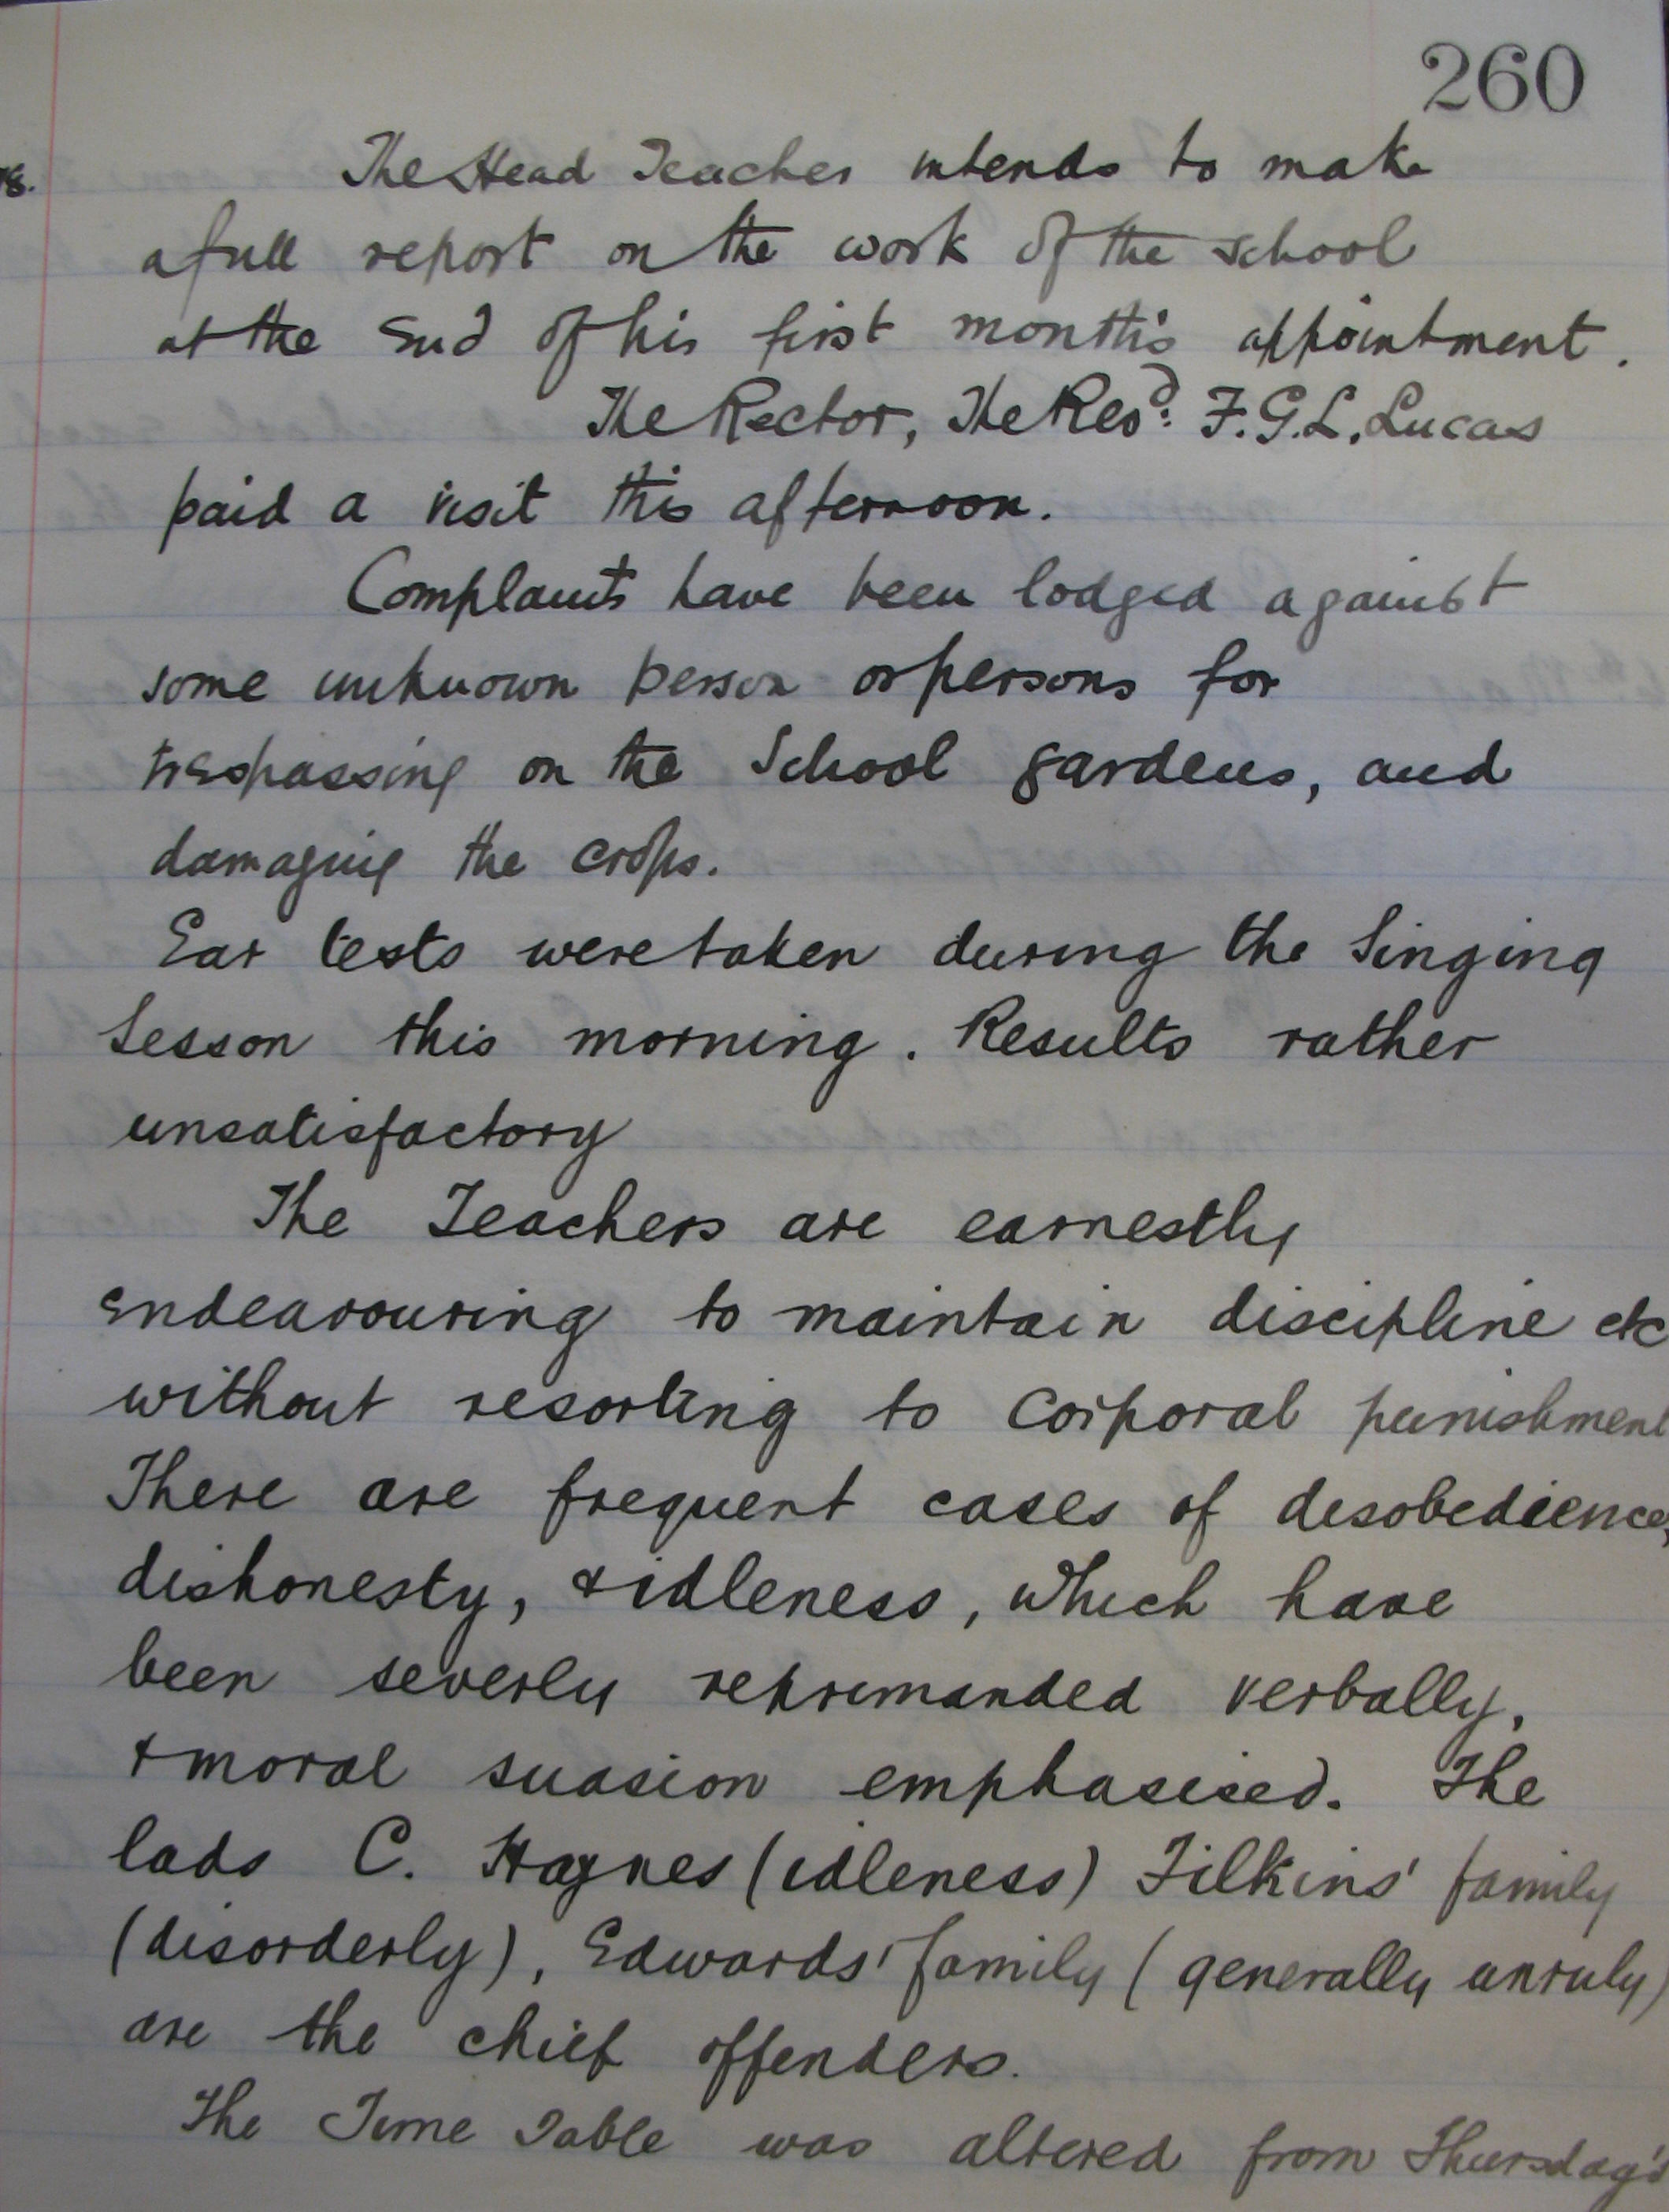 260
18.
The Head Teacher intends to make
a full report on the work of the school
at the End of his first month's appointment.
The Rector, The Revd: F.G.L. Lucas
paid a visit this afternoon.
Complaints have been lodged against
some unknown person or persons for
trespassing on the School gardens, and
damaging the crops.
Ear tests were taken during the Singing
Lesson this morning. Results rather
unsatisfactory
The Teachers are earnestly
endeavouring to maintain discipline etc
without resorting to corporal punishment
There are frequent cases of desobedience,
dishonesty, & idleness, which have
been severly reprimanded verbally,
& moral suasion emphasised. The
lads C. Haynes (idleness) Filkins' family
(disorderly), Edwards' family (generally unruly)
are the chief offenders.
The Time Table was altered from Thursday's